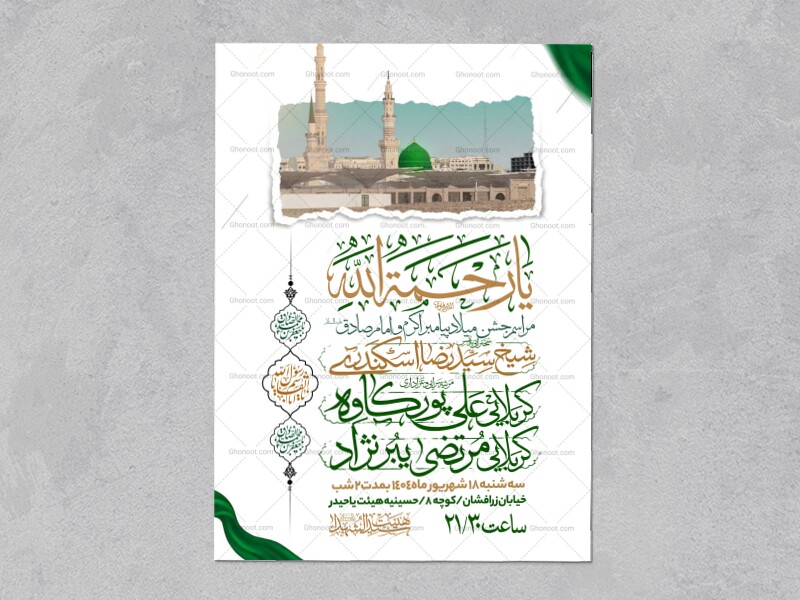 یا رحمة الله
مراسم جشن میلاد پیامبر اکرم و امام صادق
سخنرانی
شیخ سید رضا اسکندری
کربلایی علی پورکاوه
کربلایی مرتضی ببرنژاد
سه شنبه ۱۸ شهریور ماه ۱۴۰۴ بمدت ۲ شب
خیابان زرافشان / کوچه ۸ / حسینیه هیئت یا حیدر
ساعت ۲۱/۳۰
Ghonoot.com